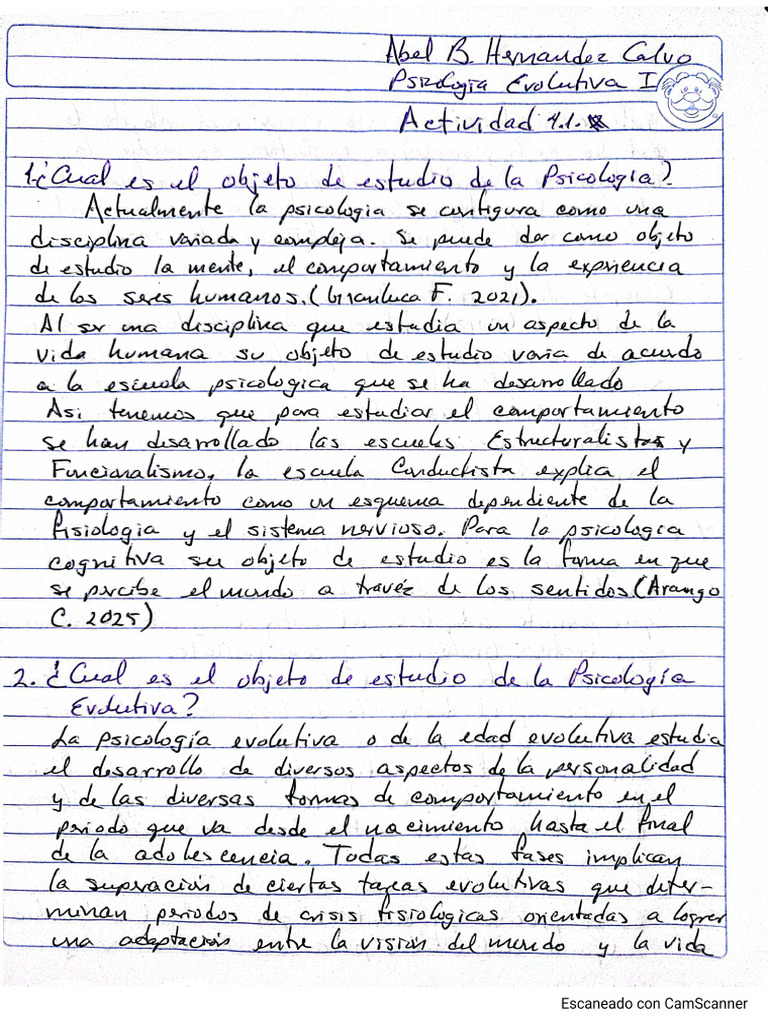 Abel B. Hernandez Calvo
Psicología Evolutiva I
Actividad 4.1.
1.¿Cual es el objeto de estudio de la Psicología?
Actualmente la psicología se configura como una
disciplina variada y compleja. Se puede dar como objeto
de estudio la mente, el comportamiento y la experiencia
de los seres humanos. (Gianluca F. 2021).
Al ser una disciplina que estudia un aspecto de la
vida humana su objeto de estudio varia de acuerdo
a la escuela psicologica que se ha desarrollado
Asi tenemos que para estudiar el comportamiento
se han desarrollado las escuelas Estructuralistas y
Funcionalismo. la escuela Conductista explica el
comportamiento como un esquema dependiente de la
fisiologia y el sistema nervioso. Para la psicologia
cognitiva su objeto de estudio es la forma en que
se percibe el mundo a travéz de los sentidos (Arango
C. 2025)
2. ¿Cual es el objeto de estudio de la Psicología
Evolutiva?
La psicología evolutiva o de la edad evolutiva estudia
el desarrollo de diversos aspectos de la personalidad
y de las diversas formas de comportamiento en el
periodo que va desde el nacimiento hasta el final
de la adolescencia. Todas estas fases implican
la superación de ciertas tareas evolutivas que deter-
minan periodos de crisis fisiologicas orientadas a lograr
una adaptación entre la visión del mundo y la vida
Escaneado con CamScanner